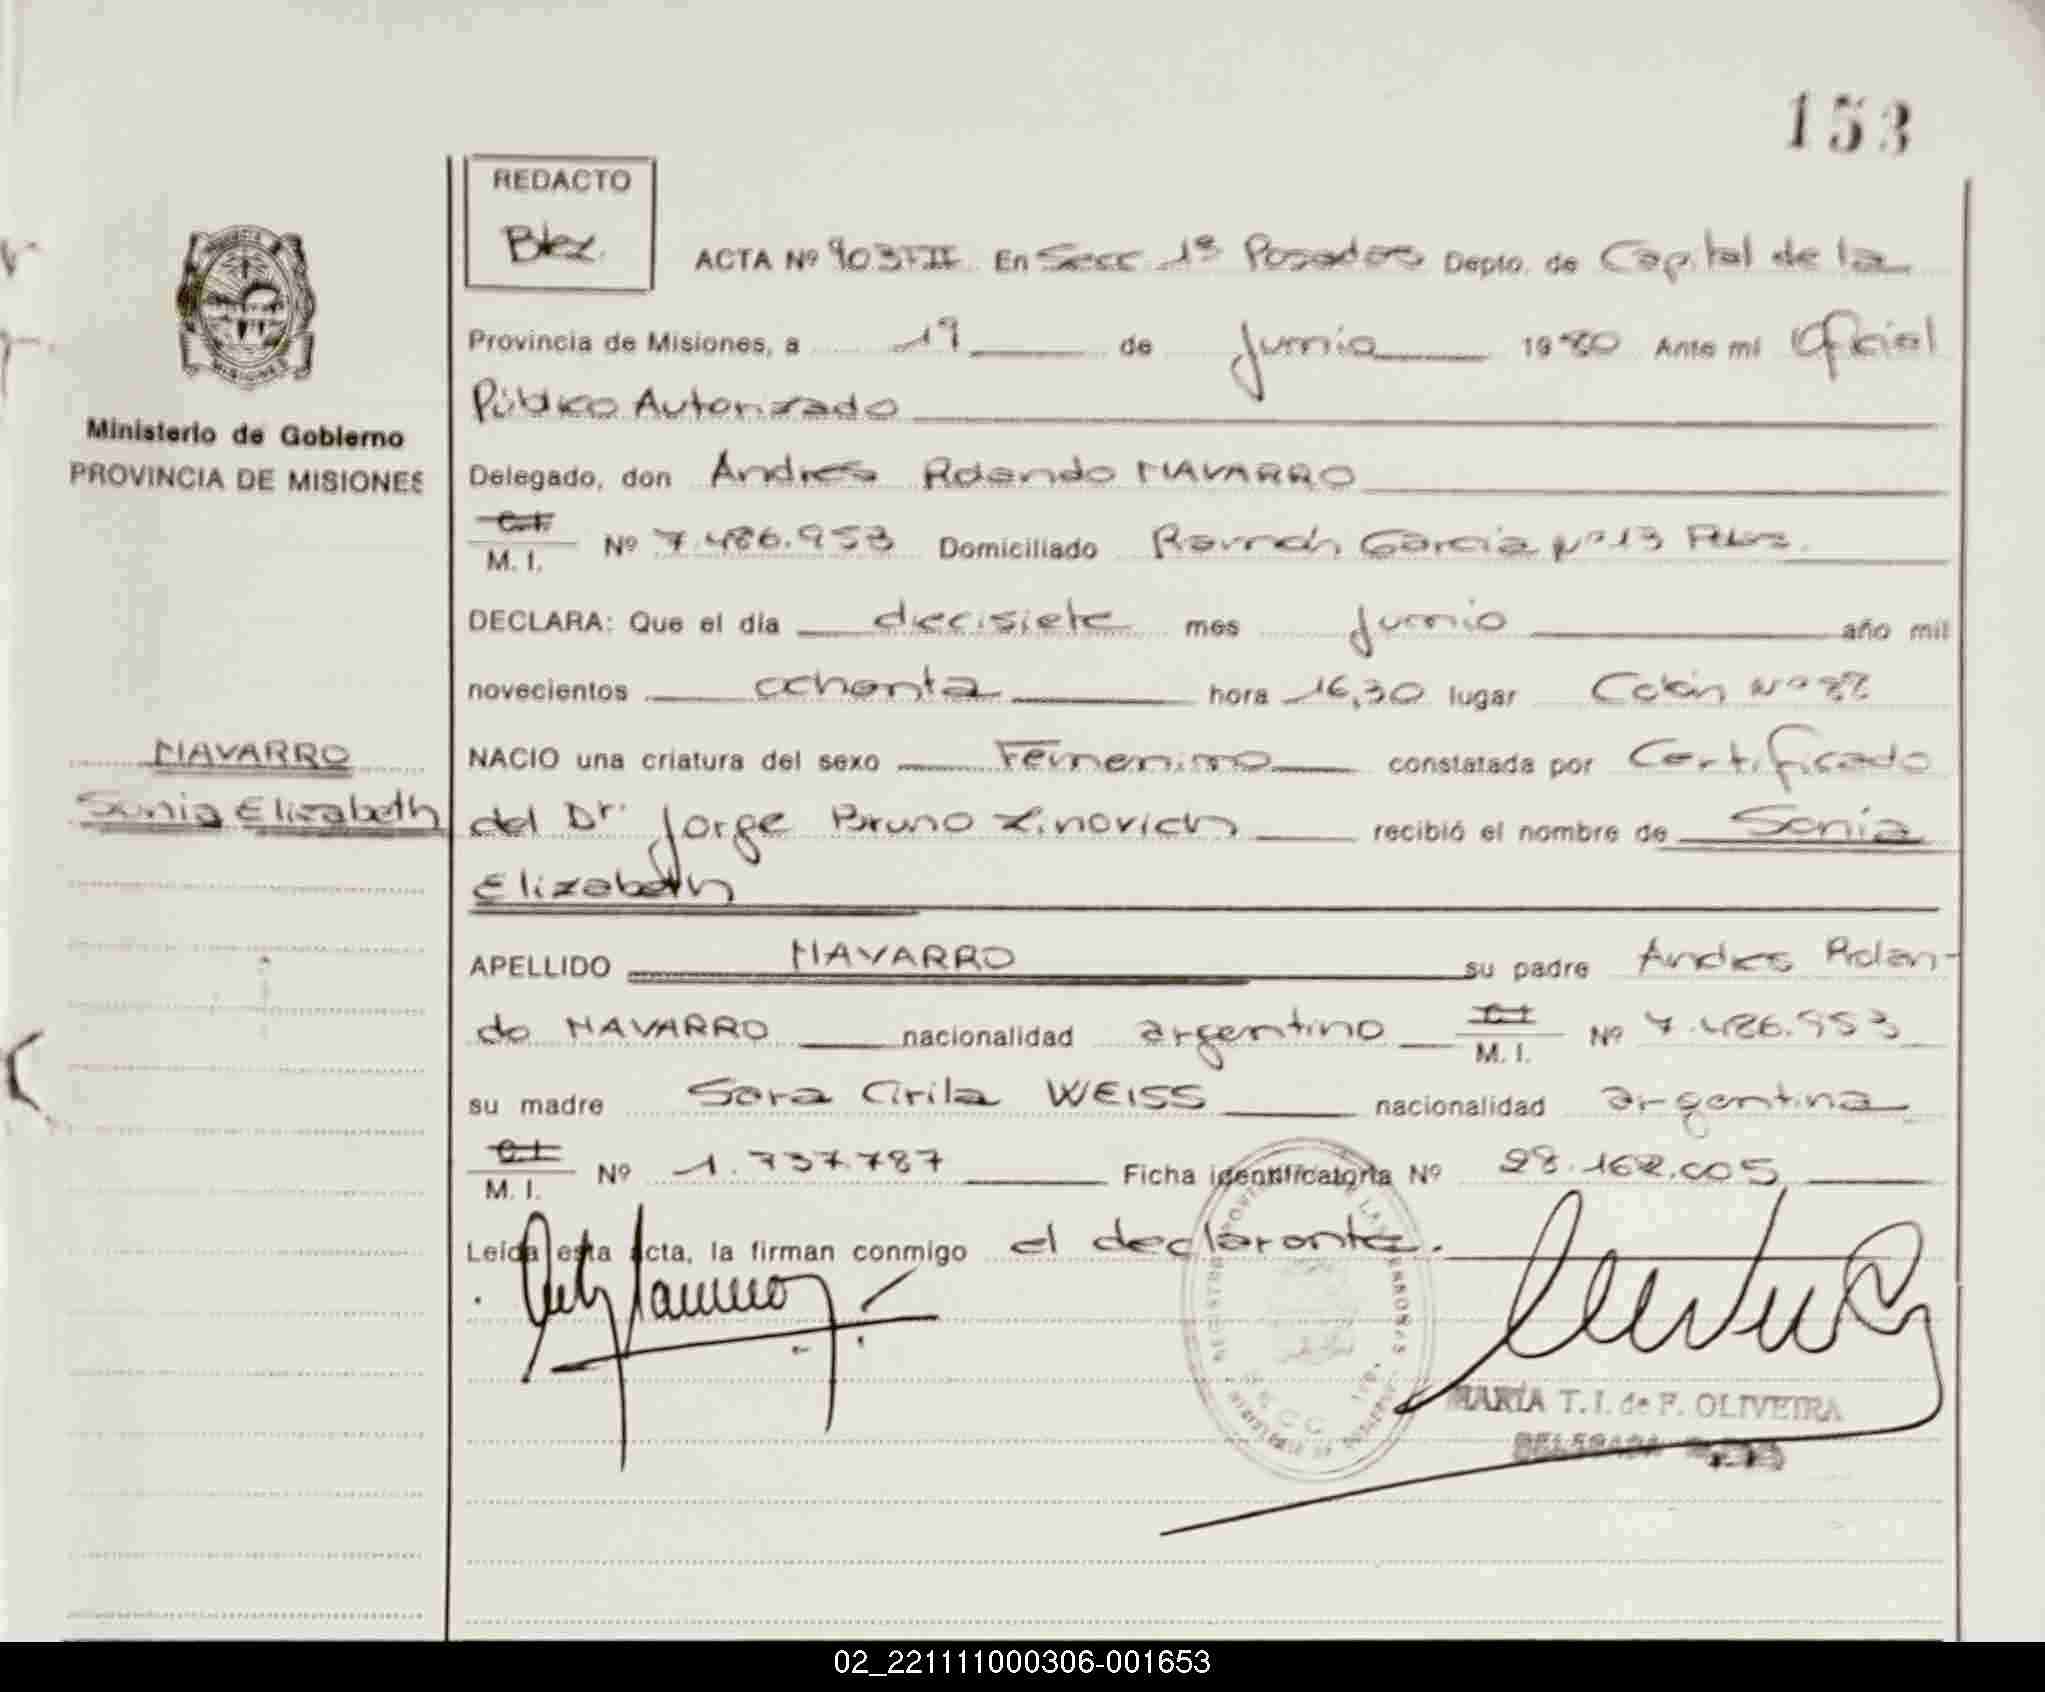 153
REDACTO
Blez.
ACTA Nº 903 TII En Secc 1ª Posadas Depto. de Capital de la
Provincia de Misiones, a 19 de Junio 1980 Ante mi Oficial
Público Autorizado
Ministerio de Gobierno
PROVINCIA DE MISIONES
Delegado, don Andres Rolando NAVARRO
C.I.
M. I. Nº 7.486.953 Domiciliado Ramón García Nº 13 Pdas.
DECLARA: Que el día diecisiete mes Junio año mil
novecientos ochenta hora 16,30 lugar Colón Nº
NAVARRO
Sonia Elizabeth
NACIO una criatura del sexo Femenino constatada por Certificado
del Dr. Jorge Bruno Zinovich recibió el nombre de Sonia
Elizabeth
APELLIDO NAVARRO su padre Andres Rolan-
do NAVARRO nacionalidad argentino C.I
M. I. Nº 7.486.953
su madre Sara Cirila WEISS nacionalidad argentina
C.I.
M. I. Nº 1.737.787 Ficha identificatoria Nº 28.162.005
Leída esta acta, la firman conmigo el declarante.
MARÍA T. I. de F. OLIVEIRA
DELEGADA
02_221111000306-001653